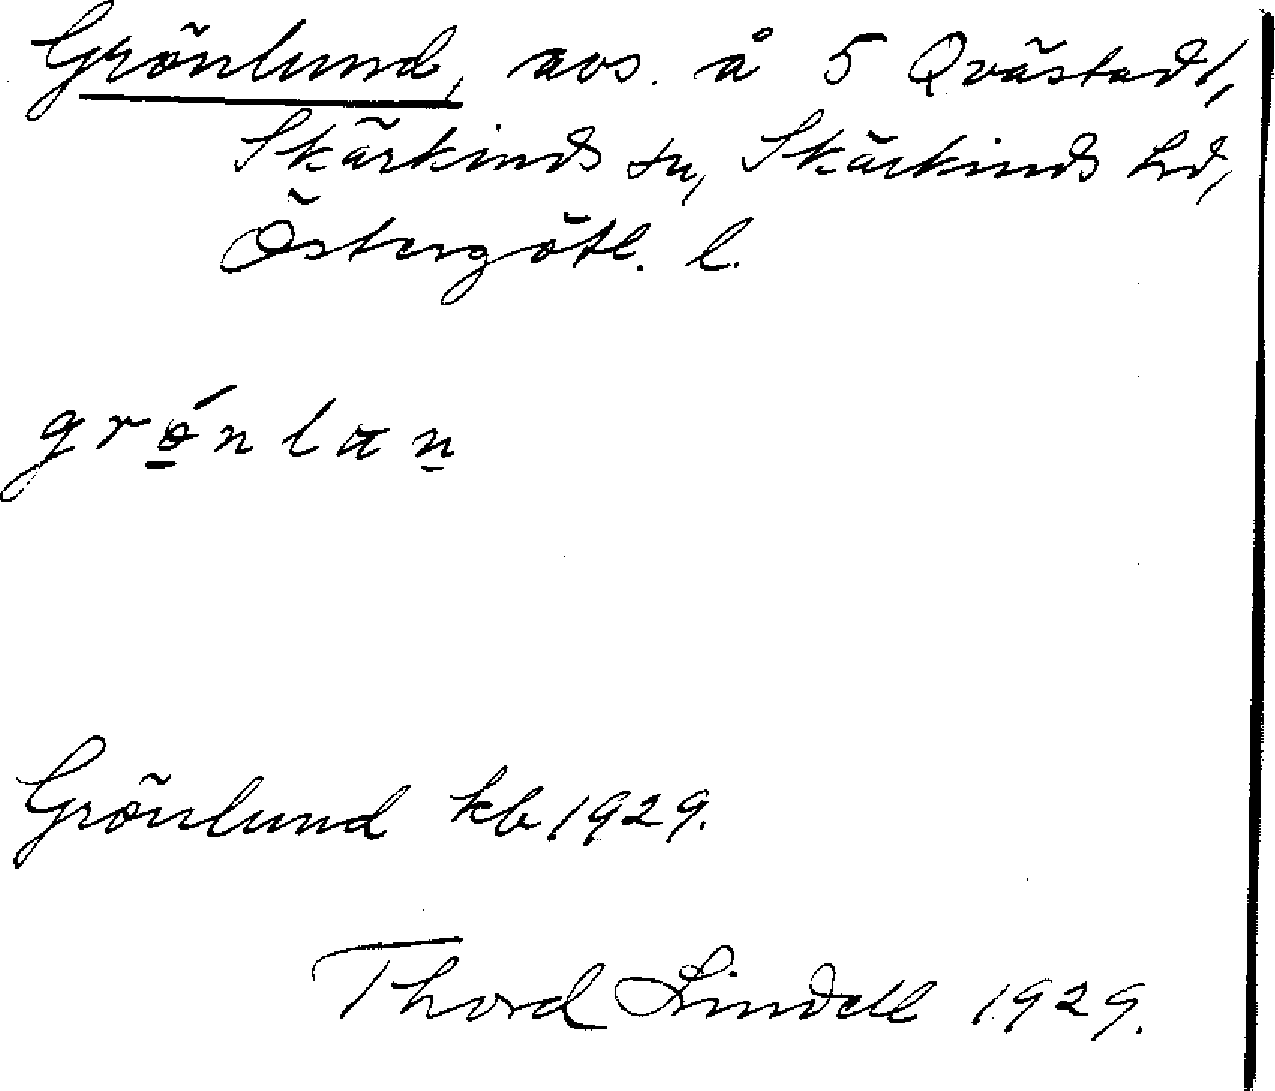 Grönlund, avs. å 5 Qvästad/,
Skärkinds sn, Skärkinds hd,
Östergötl. l.
grǿ̱nlan̠
Grönlund kb 1929.
Thord Lindell 1929.